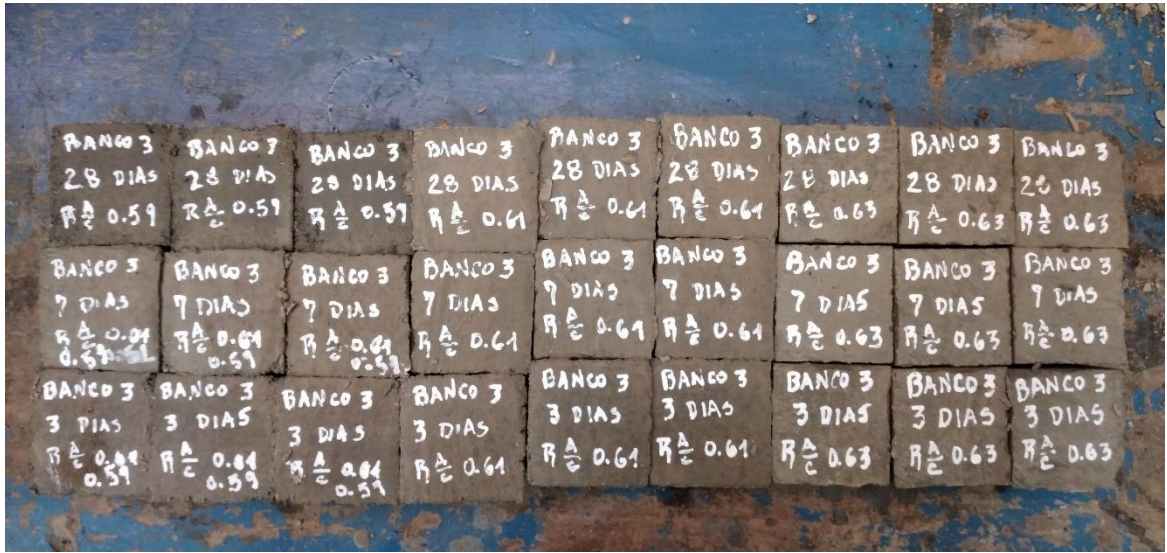 BANCO 3
28 DIAS
R A/C 0.59
BANCO 3
28 DIAS
R A/C 0.59
BANCO 3
28 DIAS
R A/C 0.59
BANCO 3
28 DIAS
R A/C 0.61
BANCO 3
28 DIAS
R A/C 0.61
BANCO 3
28 DIAS
R A/C 0.61
BANCO 3
28 DIAS
R A/C 0.63
BANCO 3
28 DIAS
R A/C 0.63
BANCO 3
28 DIAS
R A/C 0.63
BANCO 3
7 DIAS
R A/C 0.61
0.59
BANCO 3
7 DIAS
R A/C 0.61
0.59
BANCO 3
7 DIAS
R A/C 0.61
0.59
BANCO 3
7 DIAS
R A/C 0.61
BANCO 3
7 DIAS
R A/C 0.61
BANCO 3
7 DIAS
R A/C 0.61
BANCO 3
7 DIAS
R A/C 0.63
BANCO 3
7 DIAS
R A/C 0.63
BANCO 3
7 DIAS
R A/C 0.63
BANCO 3
3 DIAS
R A/C 0.61
0.59
BANCO 3
3 DIAS
R A/C 0.61
0.59
BANCO 3
3 DIAS
R A/C 0.61
0.59
BANCO 3
3 DIAS
R A/C 0.61
BANCO 3
3 DIAS
R A/C 0.61
BANCO 3
3 DIAS
R A/C 0.61
BANCO 3
3 DIAS
R A/C 0.63
BANCO 3
3 DIAS
R A/C 0.63
BANCO 3
3 DIAS
R A/C 0.63